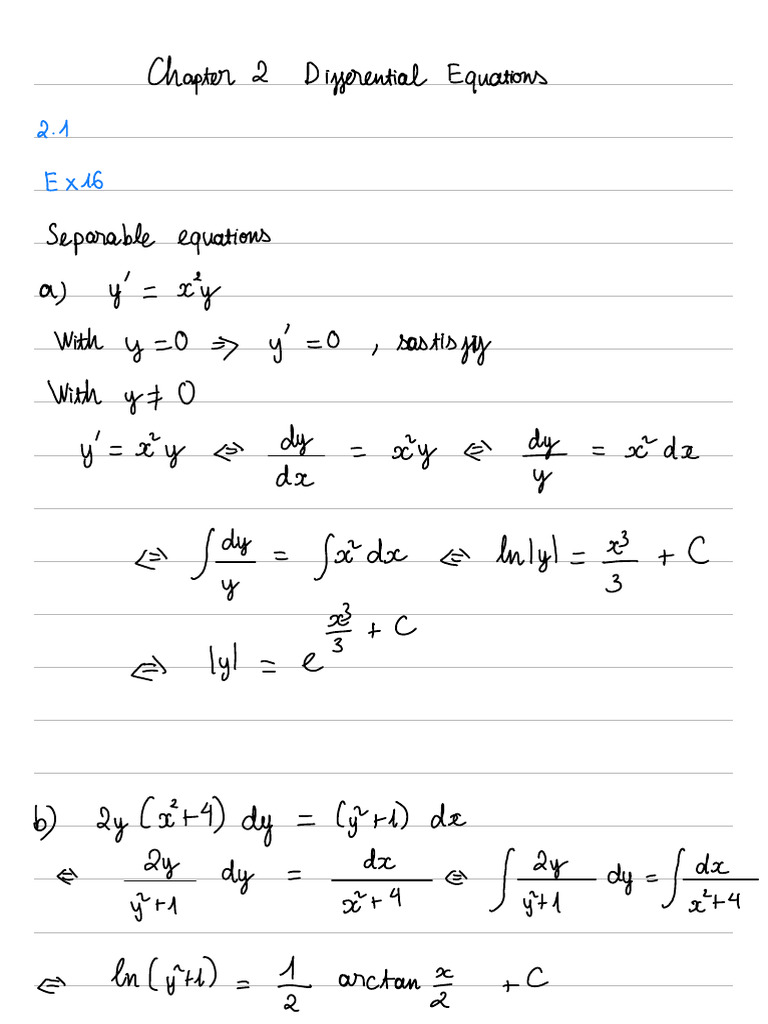 Chapter 2 Differential Equations
2.1
Ex16
Separable equations
a) y' = x²y
With y = 0 ⇒ y' = 0 , sastisfy
With y ≠ 0
y' = x²y ⇔ dy/dx = x²y ⇔ dy/y = x² dx
⇔ ∫ dy/y = ∫ x² dx ⇔ ln|y| = x³/3 + C
⇔ |y| = e^(x³/3 + C)
b) 2y (x²+4) dy = (y²+1) dx
⇔ 2y/(y²+1) dy = dx/(x²+4) ⇔ ∫ 2y/(y²+1) dy = ∫ dx/(x²+4)
⇔ ln(y²+1) = 1/2 arctan x/2 + C